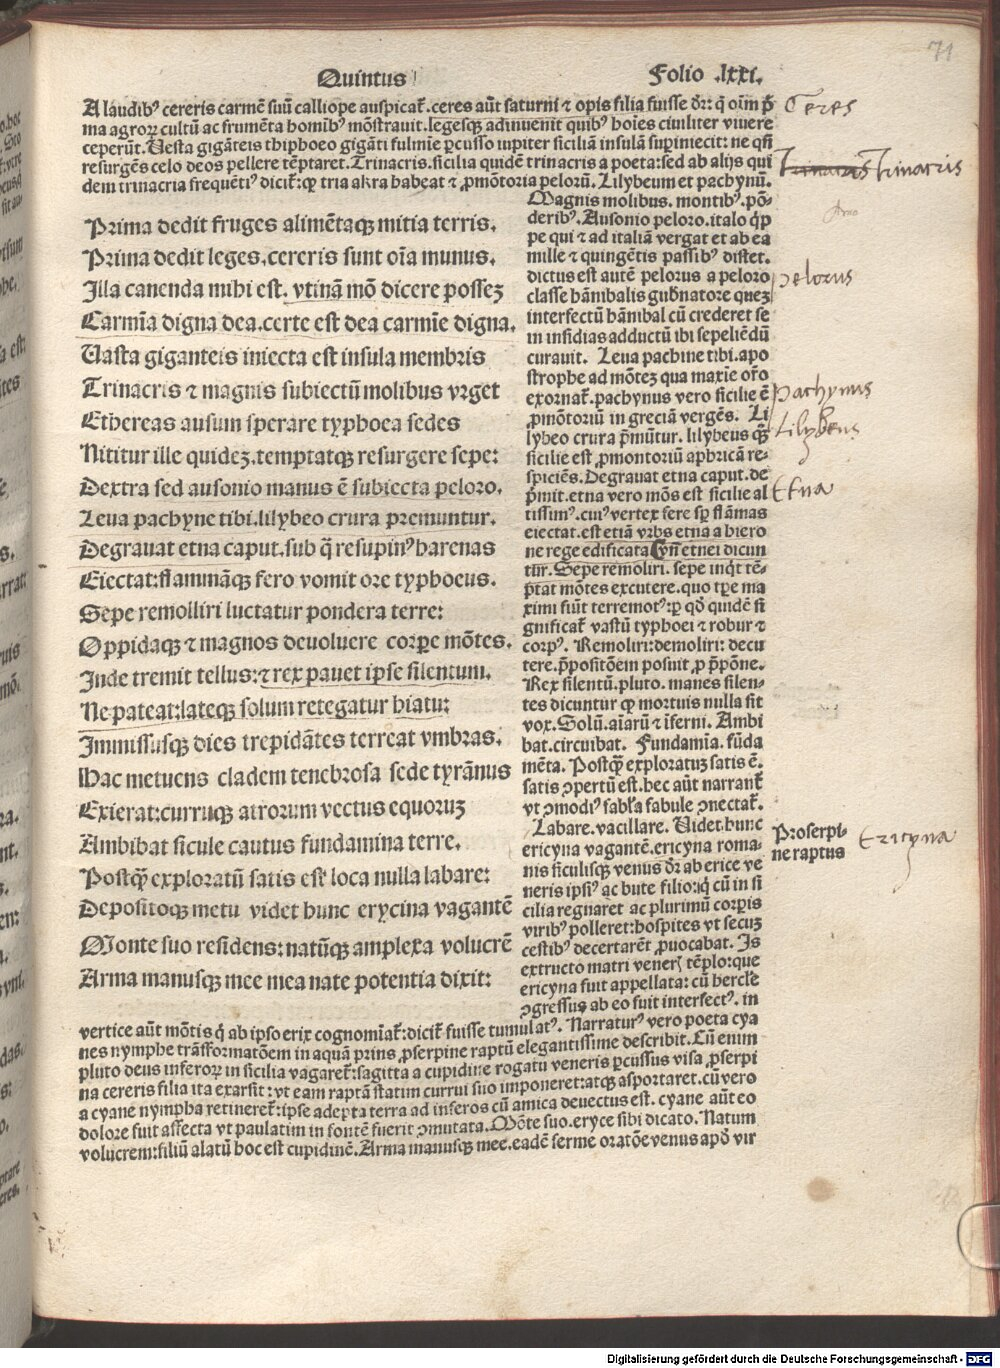 71
Quintus
Folio .lxxi.
A laudibꝰ cereris carmē suū calliope auspicat̄. ceres aūt saturni ⁊ opis filia fuisse dr̄: q̄ oīm p̄
ma agroꝝ cultū ac frumēta homībꝰ mōstrauit. legesqꝫ adinuenit quibꝰ hoīes ciuiliter viuere
ceperūt. Uesta gigāteis thiphoeo gigāti fulmīe ꝑcusso iupiter siciliā insulā supīniecit: ne qn̄
resurgēs celo deos pellere tēptaret. Trinacris. sicilia quidē trinacris a poeta: sed ab alijs qui
dem trinacria frequētiꝰ dicit̄: ꝙ tria akra habeat ⁊ ꝓmōtoria pelorū. Lilybeum et pachynū.
Prima dedit fruges alimētaqꝫ mitia terris.
Prima dedit leges. cereris sunt oīa munus.
Illa canenda mihi est. vtinā mō dicere possez
Carmīa digna dea. certe est dea carmīe digna.
Uasta giganteis iniecta est insula membris
Trinacris ⁊ magnis subiectū molibus vrget
Ethereas ausum sperare typhoea sedes
Nititur ille quidez. temptatqꝫ resurgere sepe:
Dextra sed ausonio manus ē subiecta peloro.
Leua pachyne tibi. lilybeo crura premuntur.
Degrauat etna caput. sub q̄ resupinꝰ harenas
Eiectat: flammāqꝫ fero vomit ore typhoeus.
Sepe remolliri luctatur pondera terre:
Oppidaqꝫ ⁊ magnos deuoluere corpe mōtes.
Inde tremit tellus: ⁊ rex pauet ipse silentum.
Ne pateat: lateqꝫ solum retegatur hiatu:
Immissusqꝫ dies trepidātes terreat vmbras.
Hac metuens cladem tenebrosa sede tyrānus
Exierat: curruqꝫ atrorum vectus equoruꝫ
Ambibat sicule cautus fundamina terre.
Postqꝫ̄ exploratū satis est loca nulla labare:
Depositoqꝫ metu videt hunc erycina vagantē
Monte suo residens: natūqꝫ amplexa volucrē
Arma manusqꝫ mee mea nate potentia dixit:
Magnis molibus. montibꝰ. pō-
deribꝰ. Ausonio peloro. italo q̄ꝑ
pe qui ⁊ ad italiā vergat et ab ea
mille ⁊ quingētis passibꝰ distet.
dictus est autē pelorus a peloro
classe hānibalis gub̄natore queꝫ
interfectū hānibal cū crederet se
in insidias adductū ibi sepeliēdū
curauit. Leua pachine tibi. apo
strophe ad mōteꝫ qua maxīe or̄o
exornat̄. pachynus vero sicilie ē
ꝓmōtoriū in greciā vergēs. Li
lybeo crura p̄mūtur. lilybeus qꝫ̄
sicilie est ꝓmontoriū aphricā re-
spiciēs. Degrauat etna caput. de
p̄mit. etna vero mōs est sicilie al
tissimꝰ. cuiꝰ vertex fere sp̄ flāmas
eiectat. est etiā vrbs etna a hiero
ne rege edificata Cyn̄ etnei dicun
tur. Sepe remoliri. sepe inq̄t tē-
ptat mōtes excutere. quo tp̄e ma
ximi fiūt terremotꝰ: ꝑ qd̄ quidē si
gnificat̄ vastū typhoei ⁊ robur ⁊
corpꝰ. Remoliri: demoliri: decu
tere. p̄positōem posuit ꝓ p̄pōne.
Rex silentū. pluto. manes silen-
tes dicuntur ꝙ mortuis nulla sit
vox. Solū. aīarū ⁊ īferni. Ambi
bat. circuibat. Fundamīa. fūda
mēta. Postqꝫ̄ exploratuꝫ satis ē.
satis ꝯpertū est. hec aūt narrant̄
vt ꝯmodiꝰ sabīa fabule ꝯnectat̄.
Labare. vacillare. Uidet hunc
ericyna vagantē. ericyna roma-
nis siculisqꝫ venus dr̄ ab erice ve
neris ipsiꝰ ac bute filio: q̄ cū in si
cilia regnaret ac plurimū corꝑis
viribꝰ polleret: hospites vt secuꝫ
cestibꝰ decertarēt ꝓuocabat. Is
extructo matri venerꝭ tēplo: que
ericyna fuit appellata: cū hercle
ꝯgressus ab eo fuit interfectꝰ. in
vertice aūt mōtis q̄ ab ipso erix cognomīat̄: dicit̄ fuisse tumulatꝰ. Narraturꝰ vero poeta cya
nes nymphe trāsformatōem in aquā prius ꝓserpine raptū elegantissime describit. Cū enim
pluto deus inferoꝝ in sicilia vagaret̄: sagitta a cupidine rogatu veneris ꝑcussus visa ꝓserpi
na cereris filia ita exarsit: vt eam raptā statim currui suo imponeret: atqꝫ asportaret. cū vero
a cyane nympha retineret̄: ipse adepta terra ad inferos cū amica deuectus est. cyane aūt eo
dolore fuit affecta vt paulatim in fontē fuerit ꝯmutata. Mōte suo. eryce sibi dicato. Natum
volucrem: filiū alatū hoc est cupidinē. Arma manusqꝫ mee. eadē ferme oratōe venus apd̄ vir
Ceres
Trinacris
pelorus
Pachynus
Lilybeus
Etna
Proserpi-
ne raptus
Ericyna
Digitalisierung gefördert durch die Deutsche Forschungsgemeinschaft - DFG